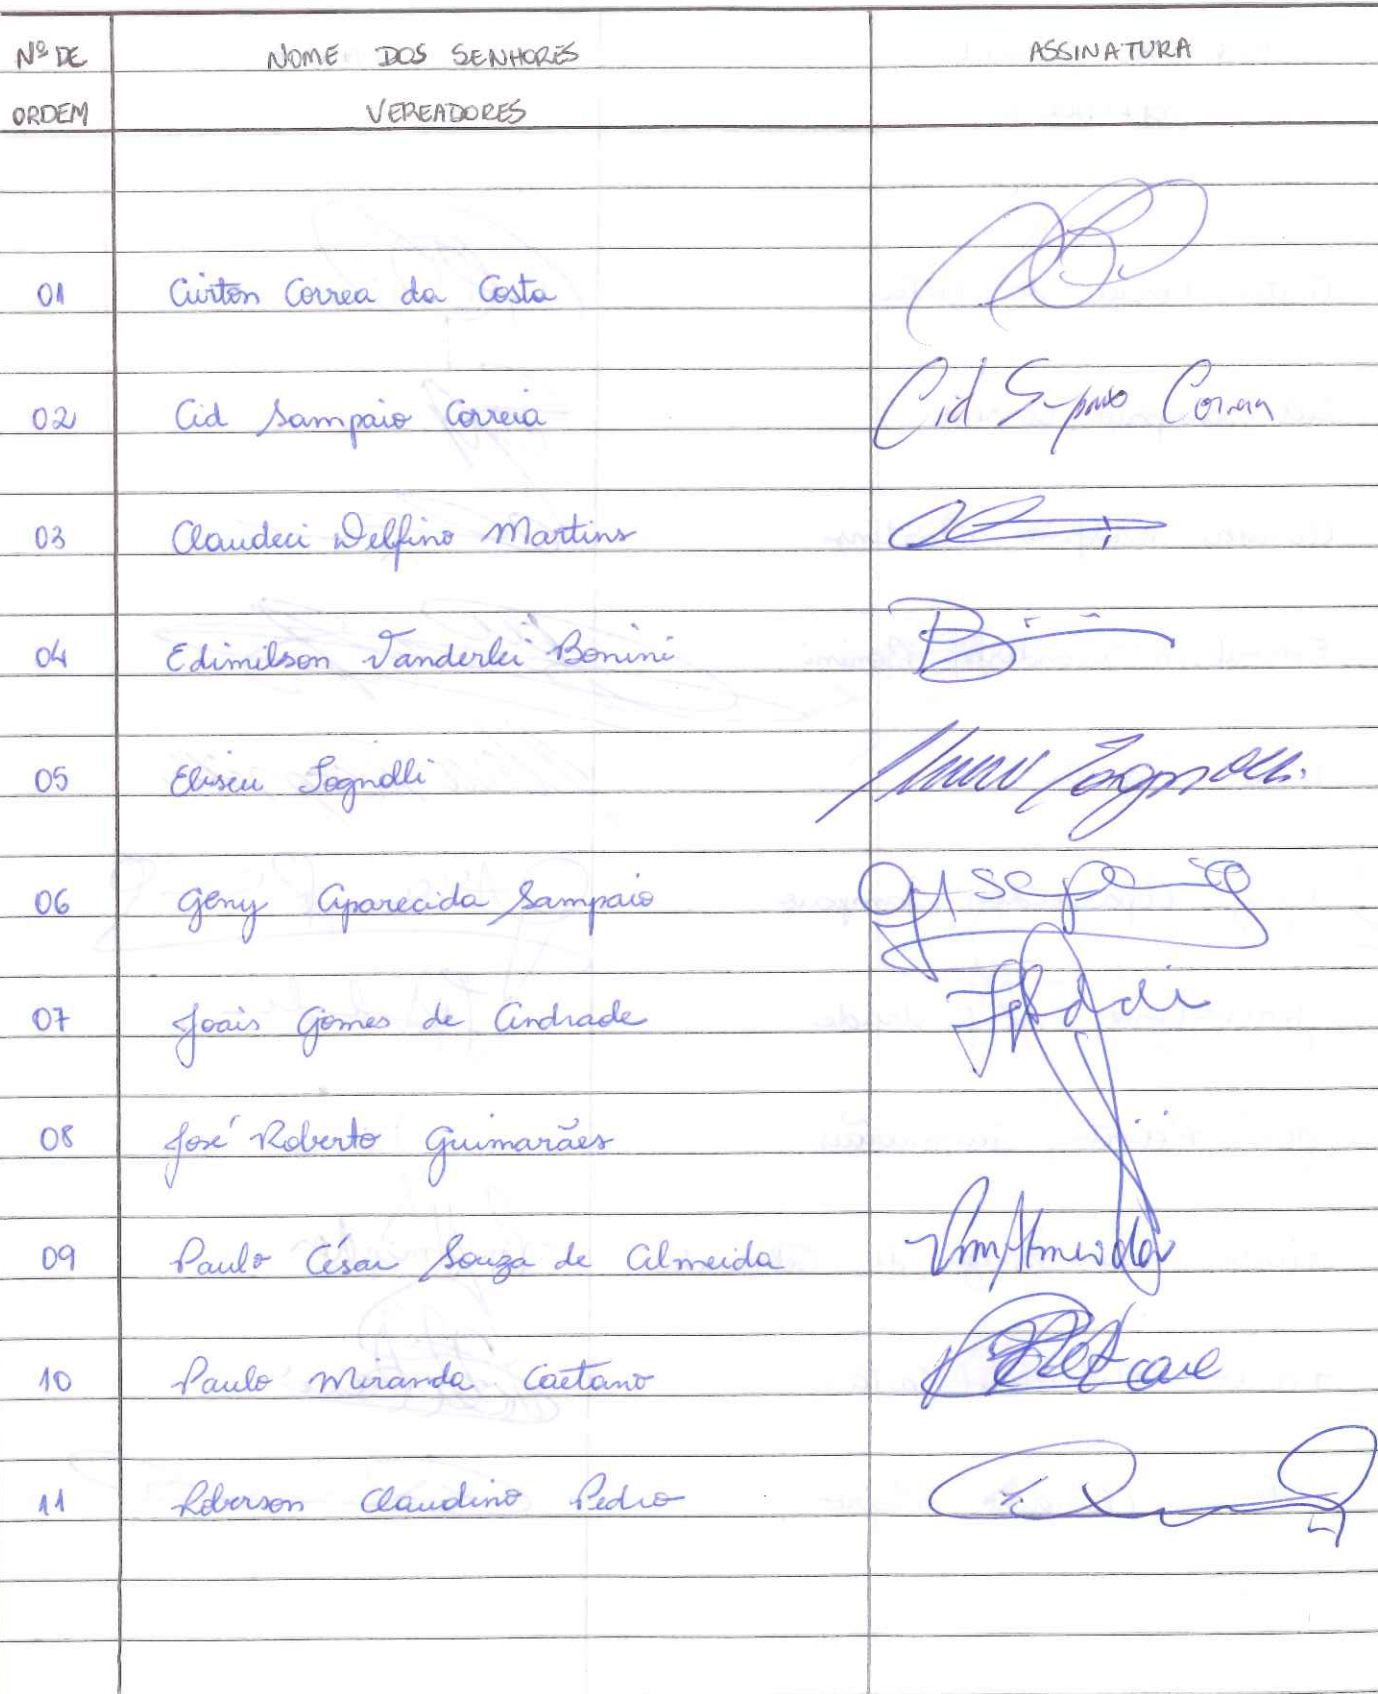 Nº DE NOME DOS SENHORES ASSINATURA
ORDEM VEREADORES
01 Airton Correa da Costa
02 Cid Sampaio Correia Cid Correia
03 Claudeci Delfino Martins
04 Edimilson Vanderlei Bonini
05 Eliseu
06 Geny Aparecida Sampaio
07 Joais Gomes de Andrade
08 José Roberto Guimarães
09 Paulo César Souza de Almeida
10 Paulo Miranda Caetano
11 Roberson Claudino Pedro